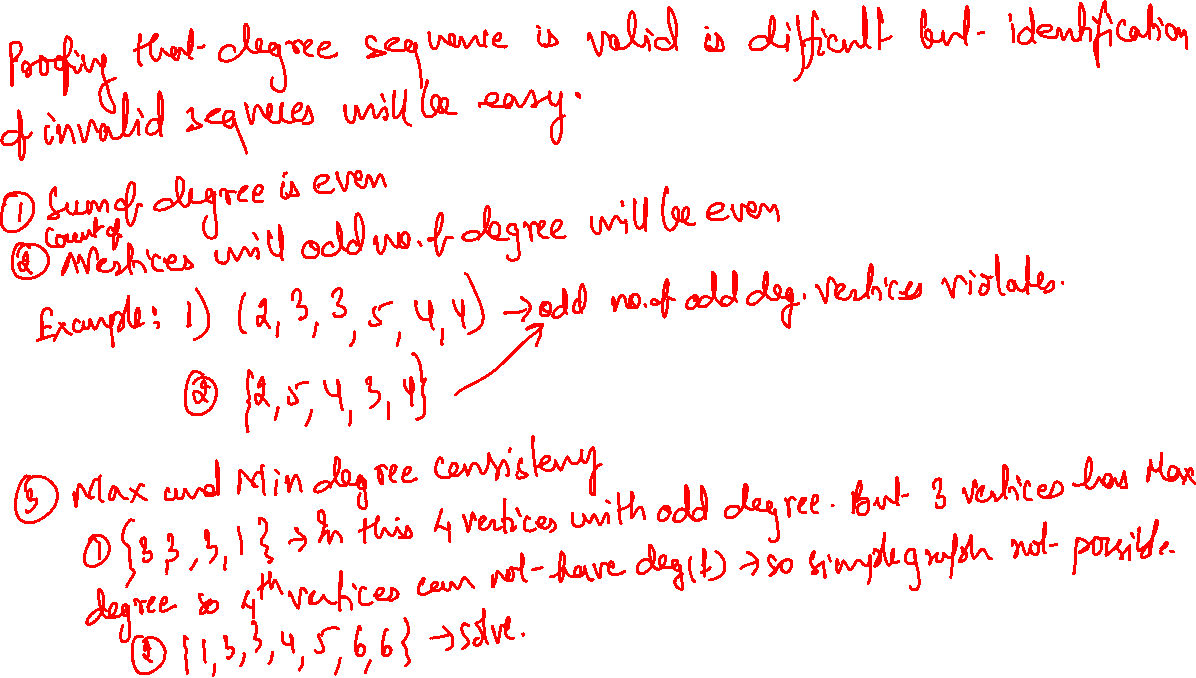 Proofing that degree sequence is valid is difficult but identification
of invalid sequeces will be easy.
① Sum of degree is even
② Count of Vertices will odd no. of degree will be even
Example: 1) (2, 3, 3, 5, 4, 4) → odd no. of odd deg. vertices violates.
② {2, 5, 4, 3, 4}
③ Max and Min degree consisteny
① {3, 3, 3, 1} → In this 4 vertices with odd degree. But 3 vertices has Max
degree so 4th vertices can not have deg(1) → so simple graph not possible.
② {1, 3, 3, 4, 5, 6, 6} → solve.